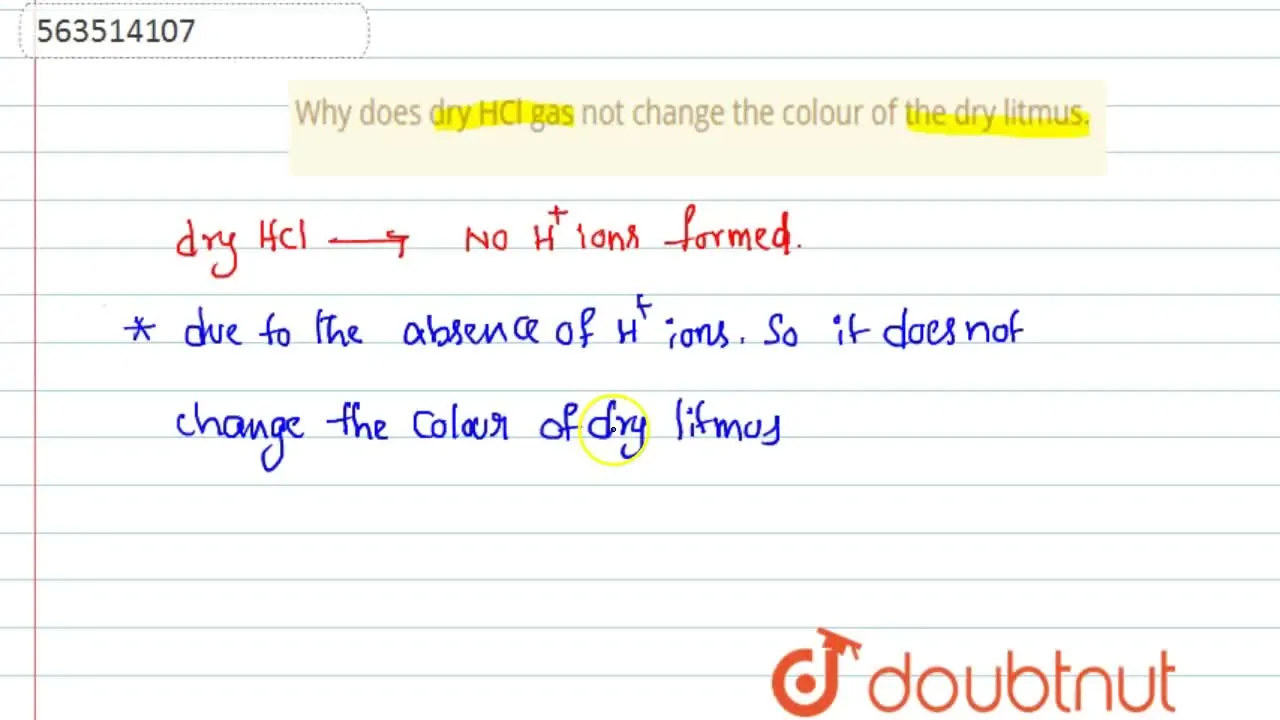 563514107
Why does dry HCl gas not change the colour of the dry litmus.
dry HCl → No H⁺ ions formed.
* due to the absence of H⁺ ions. So it does not
change the colour of dry litmus
doubtnut